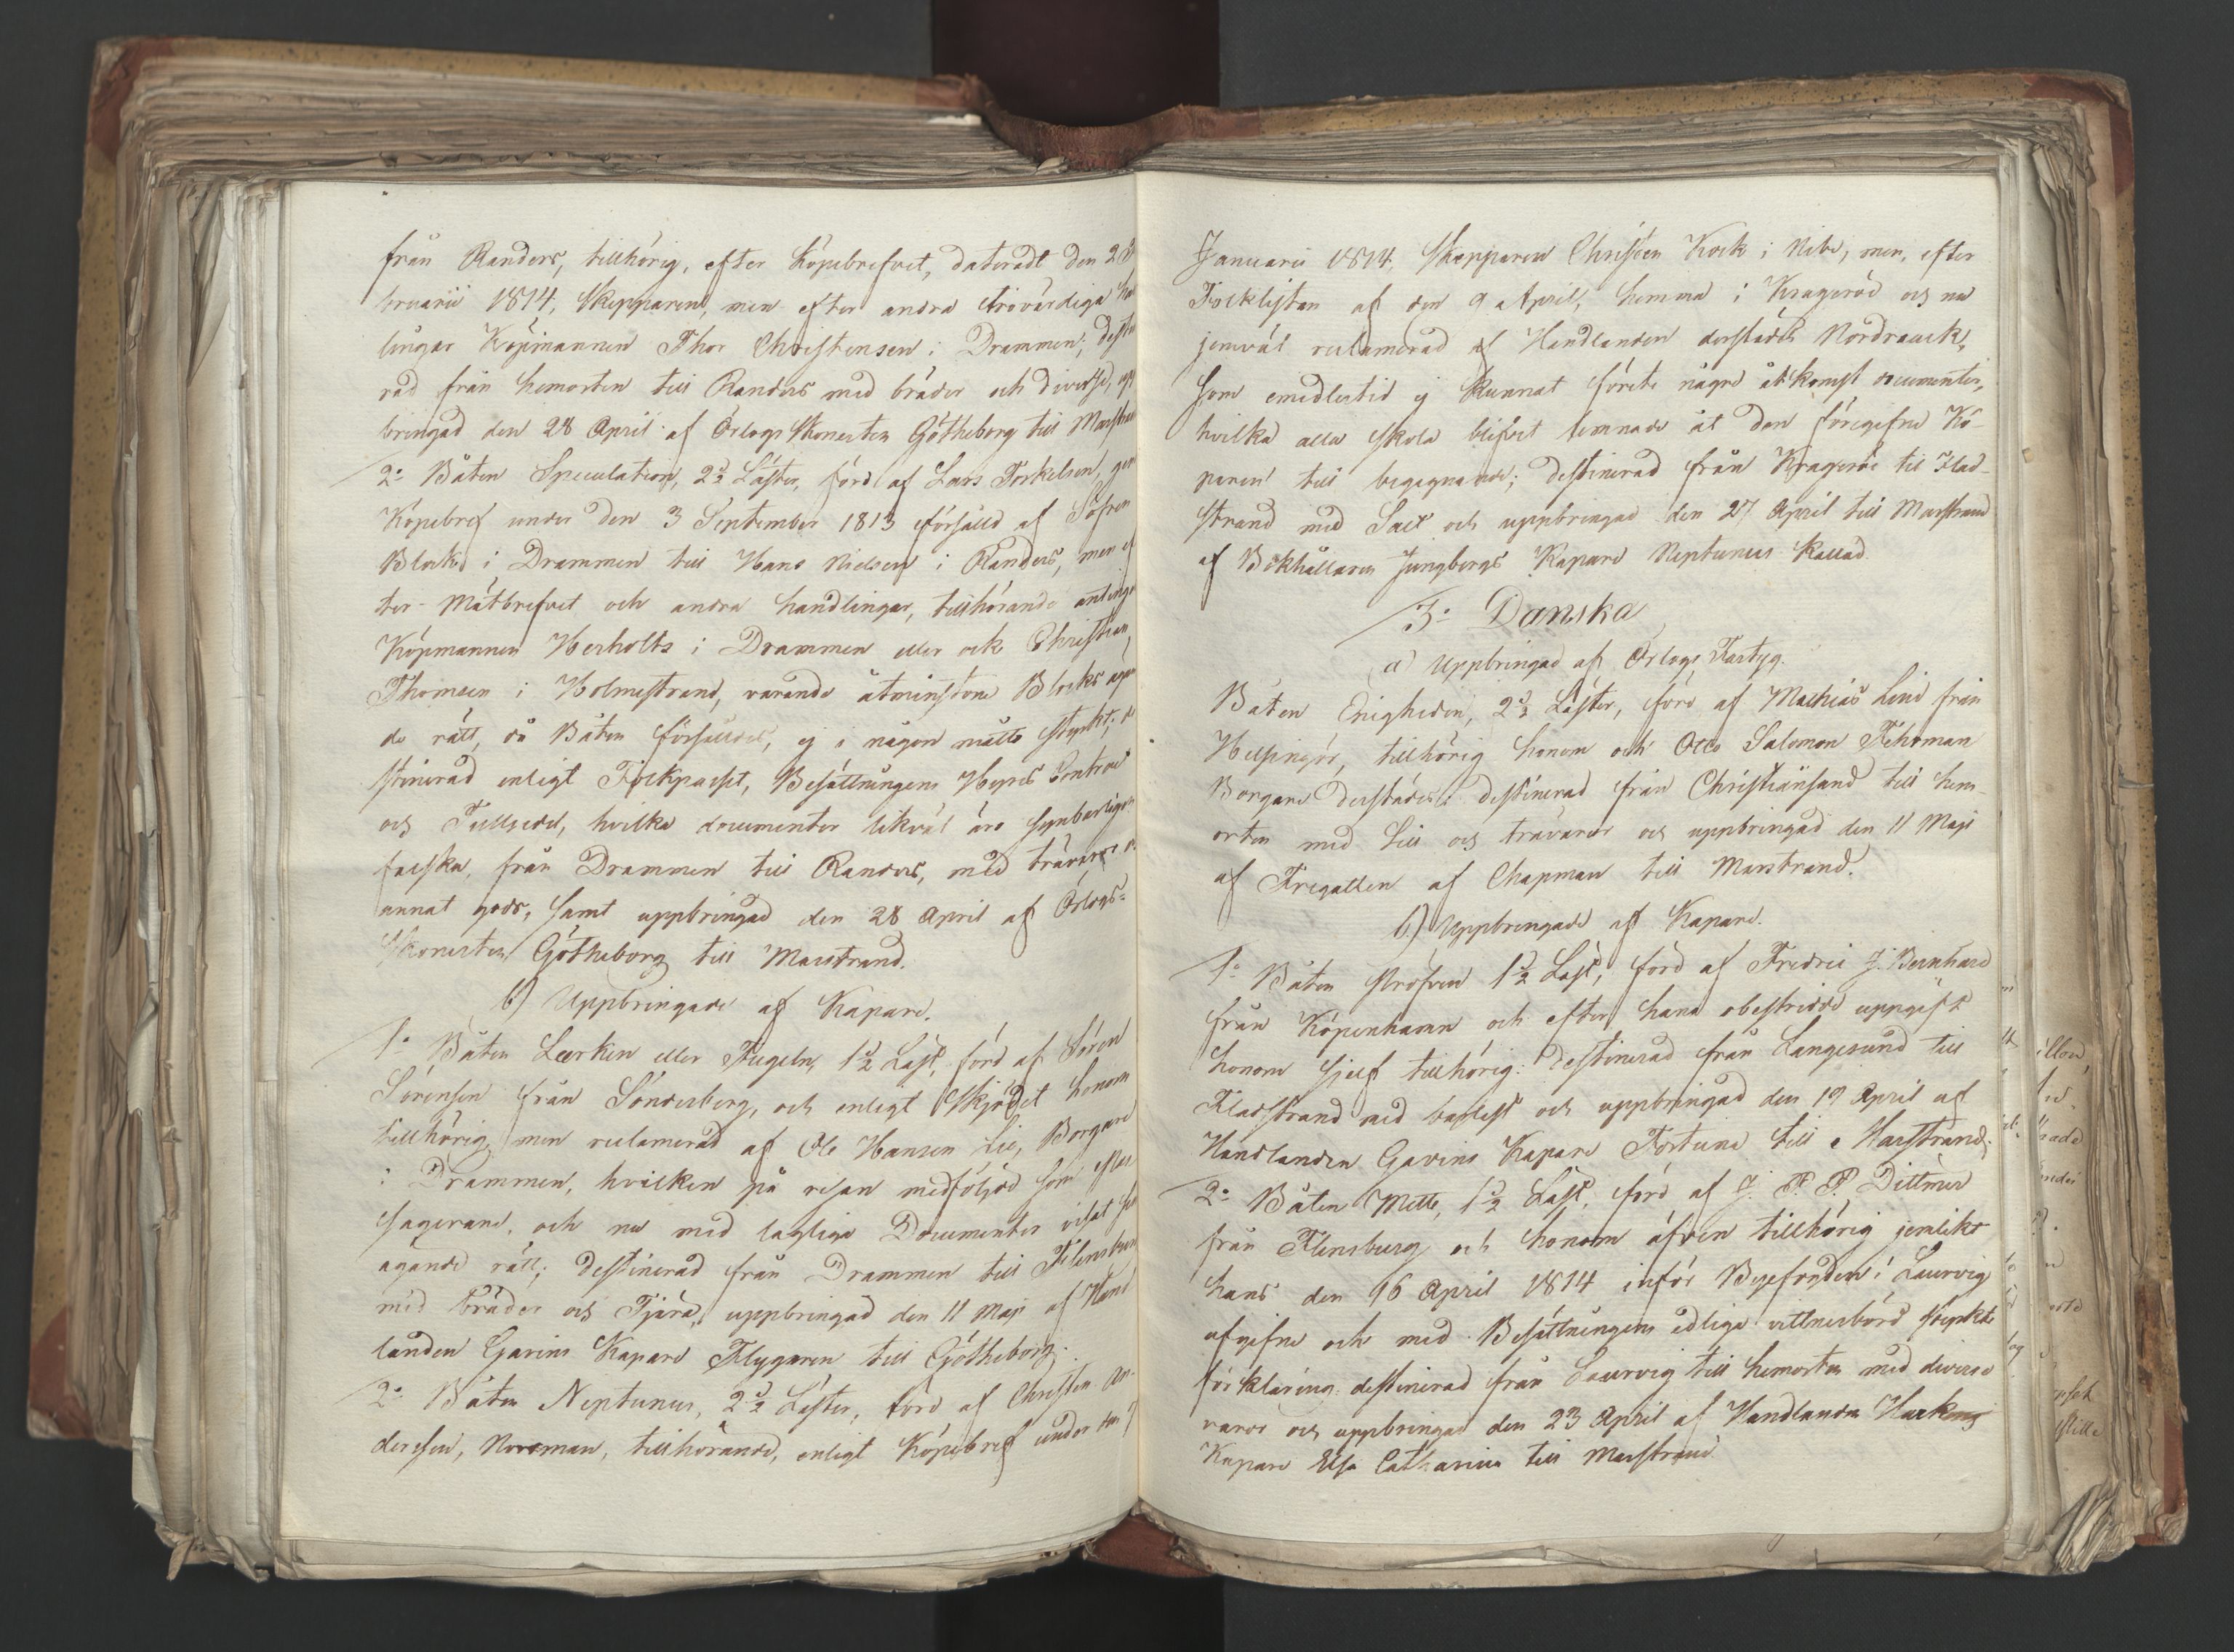 från Randers, tillhörig, efter Köpebrefvet, dateradt den 28
bruarii 1814, Skepparen, men efter andra trovärdiga
lingar Köpmannen Thor Christensen i Drammen; desti
rad från hemorten till Randers med bräder och diverse, upp
bringad den 28 April af Örlogs Skonerten Götheborg till Marstrand
2o Båten Speculation, 2 1/2 Läster, förd af Lars Torkelsen, gen
Köpebref under den 3 September 1813 försåld af Söfren
Block i Drammen till Hans Nielsen i Randers, men ef
ter Mätbrefvet och andra handlingar, tillhörande antingen
Köpmannen Herholts i Drammen eller ock Christian
Thomsen i Holmestrand, varande åtminstone Blocks ägan
de rätt, då Båten försåldes, ej i någon måtto styrkt; de
stinerad enligt Folkpasset, Besättningens Hyres Contract
och Tullsedel, hvilka documenter likväl äro synbarligen
falska, från Drammen till Randers, med trävaror o.
annat gods, samt uppbringad den 28 April af Örlogs-
Skonerten Götheborg till Marstrand.
b) Uppbringade af Kapare.
1o Båten Lærken eller Fugeln, 1 1/2 Läst, förd af Sören
Sörensen från Sönderborg, och enligt Skjödet honom
tillhörig, men reclamerad af Ole Hansen Lie, Borgare
i Drammen, hvilken på resan medföljde som pas
sagerare, och nu med lagliga Documenter visat sin
ägande rätt; destinerad från Drammen till Flensburg
med bräder och Tjära, uppbringad den 11 Maji af Hand
landen Gavins Kapare Flygaren till Götheborg.
2o Båten Neptunus, 2 1/2 Läster, förd af Christen An-
dersen, Norrman, tillhörande, enligt Köpebref under den
Januarii 1814, Skepparen Christen Kock i Nibe, men, efter
Folklistan af den 9 April, hemma i Krageröe och nu
jemväl reclamerad af Handlanden derstädes Nordraack,
som emedlertid ej kunnat förete några åtkomst documenter,
hvilka alla skola blifvit lemnade åt den föregifne Kö-
paren till begagnande; destinerad från Krageröe til Flad-
strand med Salt och uppbringad den 27 April till Marstrand
af Bokhållaren Jungbergs Kapare Neptunus kallad.
3o Danska
a) Uppbringad af Örlogs Fartyg.
Båten Enigheden, 2 1/2 Läster, förd af Mathias Lend från
Helsingör, tillhörig honom och Otto Salomon Fehrman
Borgare derstädes: destinerad från Christiansand till hem-
orten med Sill och trävaror och uppbringad den 11 Maji
af Fregatten af Chapman till Marstrand.
b) Uppbringade af Kapare.
1o Båten Pröfven 1 1/2 Läst, förd af Fredric J. Bernhard
från Köpenhamn och efter hans obestridde uppgift
honom sjelf tillhörig: destinerad från Langesund till
Fladstrand med barlast och uppbringad den 19 April af
Handlanden Gavins Kapare Fortuna till Marstrand.
2o Båten Mette, 1 1/2 Läst, förd af J. P. P. Dittmer
från Flensburg och honom äfven tillhörig jemlikt
hans den 16 April 1814 inför Byefogden i Laurvig
afgifne och med Besättningens edliga vittnesbörd styrkte
förklaring: destinerad från Laurvig till hemorten med diverse
varor och uppbringad den 23 April af Handlanden
Kapare Elsa Catharina till Marstrand.